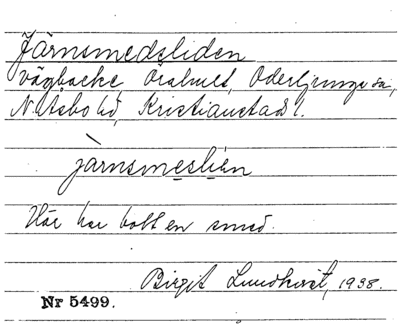 Järnsmedsliden
vägbacke, Örahult, Oderljunga sn,
N. Åsbo hd, Kristianstads l.
jàrnsmeslien
Här har bott en smed.
Birgit Lundkvist, 1938.
Nr 5499.